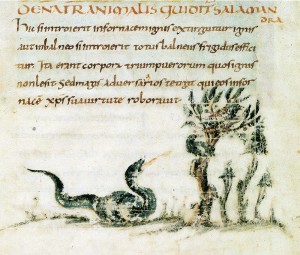 DENATRANIMALIS QUIDIT SALAMAN
DRA
hic si introierit in fornacem ignis extinguitur ignis
aut in balneo si introierit totus balneus frigidus effici
tur Ita erant corpora trium puerorum quos ignis
non lesit sed magis adversarios
nace xps sua virtute roboravit